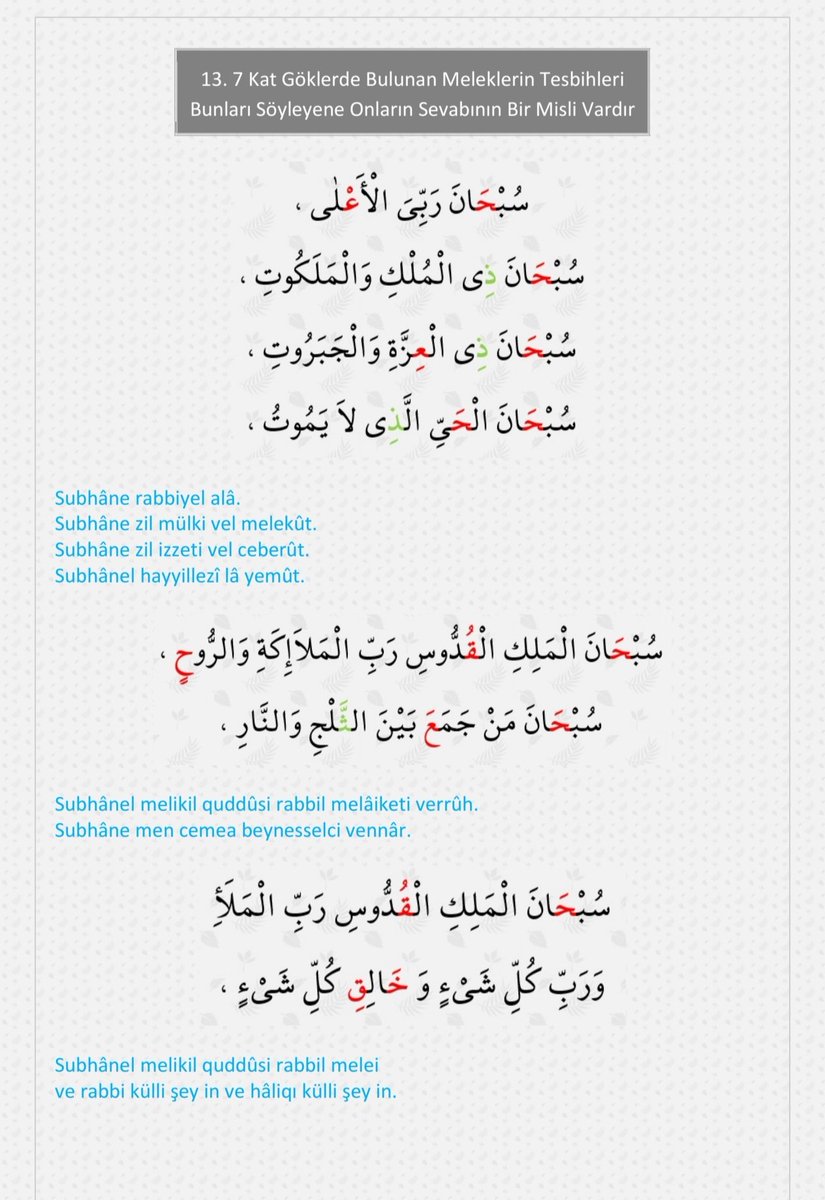 13. 7 Kat Göklerde Bulunan Meleklerin Tesbihleri
Bunları Söyleyene Onların Sevabının Bir Misli Vardır
سُبْحَانَ رَبِّىَ الْأَعْلٰى ،
سُبْحَانَ ذِى الْمُلْكِ وَالْمَلَكُوتِ ،
سُبْحَانَ ذِى الْعِزَّةِ وَالْجَبَرُوتِ ،
سُبْحَانَ الْحَيِّ الَّذِى لاَ يَمُوتُ ،
Subhâne rabbiyel alâ.
Subhâne zil mülki vel melekût.
Subhâne zil izzeti vel ceberût.
Subhânel hayyillezî lâ yemût.
سُبْحَانَ الْمَلِكِ الْقُدُّوسِ رَبِّ الْمَلاَإِكَةِ وَالرُّوحِ ،
سُبْحَانَ مَنْ جَمَعَ بَيْنَ الثَّلْجِ وَالنَّارِ ،
Subhânel melikil quddûsi rabbil melâiketi verrûh.
Subhâne men cemea beynesselci vennâr.
سُبْحَانَ الْمَلِكِ الْقُدُّوسِ رَبِّ الْمَلَأِ
وَرَبِّ كُلِّ شَىْءٍ وَ خَالِقِ كُلِّ شَىْءٍ ،
Subhânel melikil quddûsi rabbil melei
ve rabbi külli şey in ve hâliqı külli şey in.